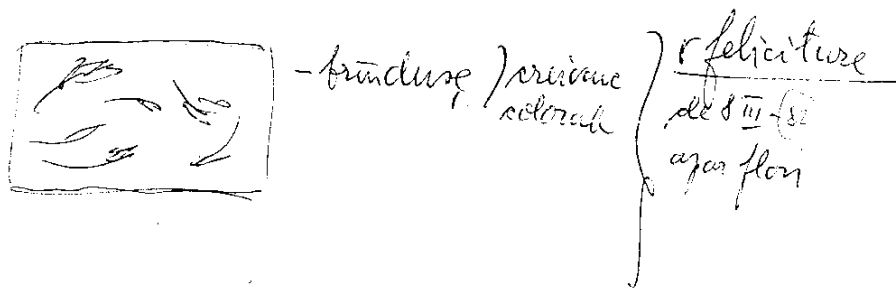 - brîndușe ) creioane
colorate
felicitare
de 8 III - 82
apar flori